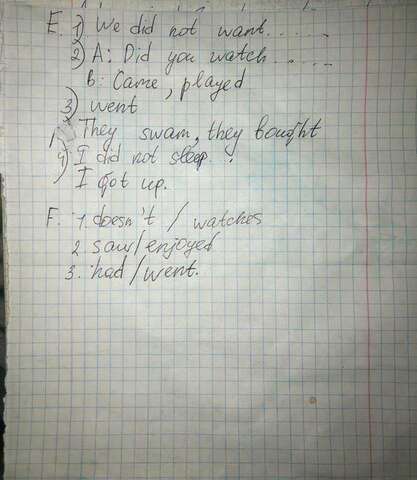 E. 1) We did not want.....
2) A: Did you watch.....
B: Came, played
3) went
They swam, they bought
4) I did not sleep.
I got up.
F. 1. doesn't / watches
2. saw/enjoyed
3. had/went.